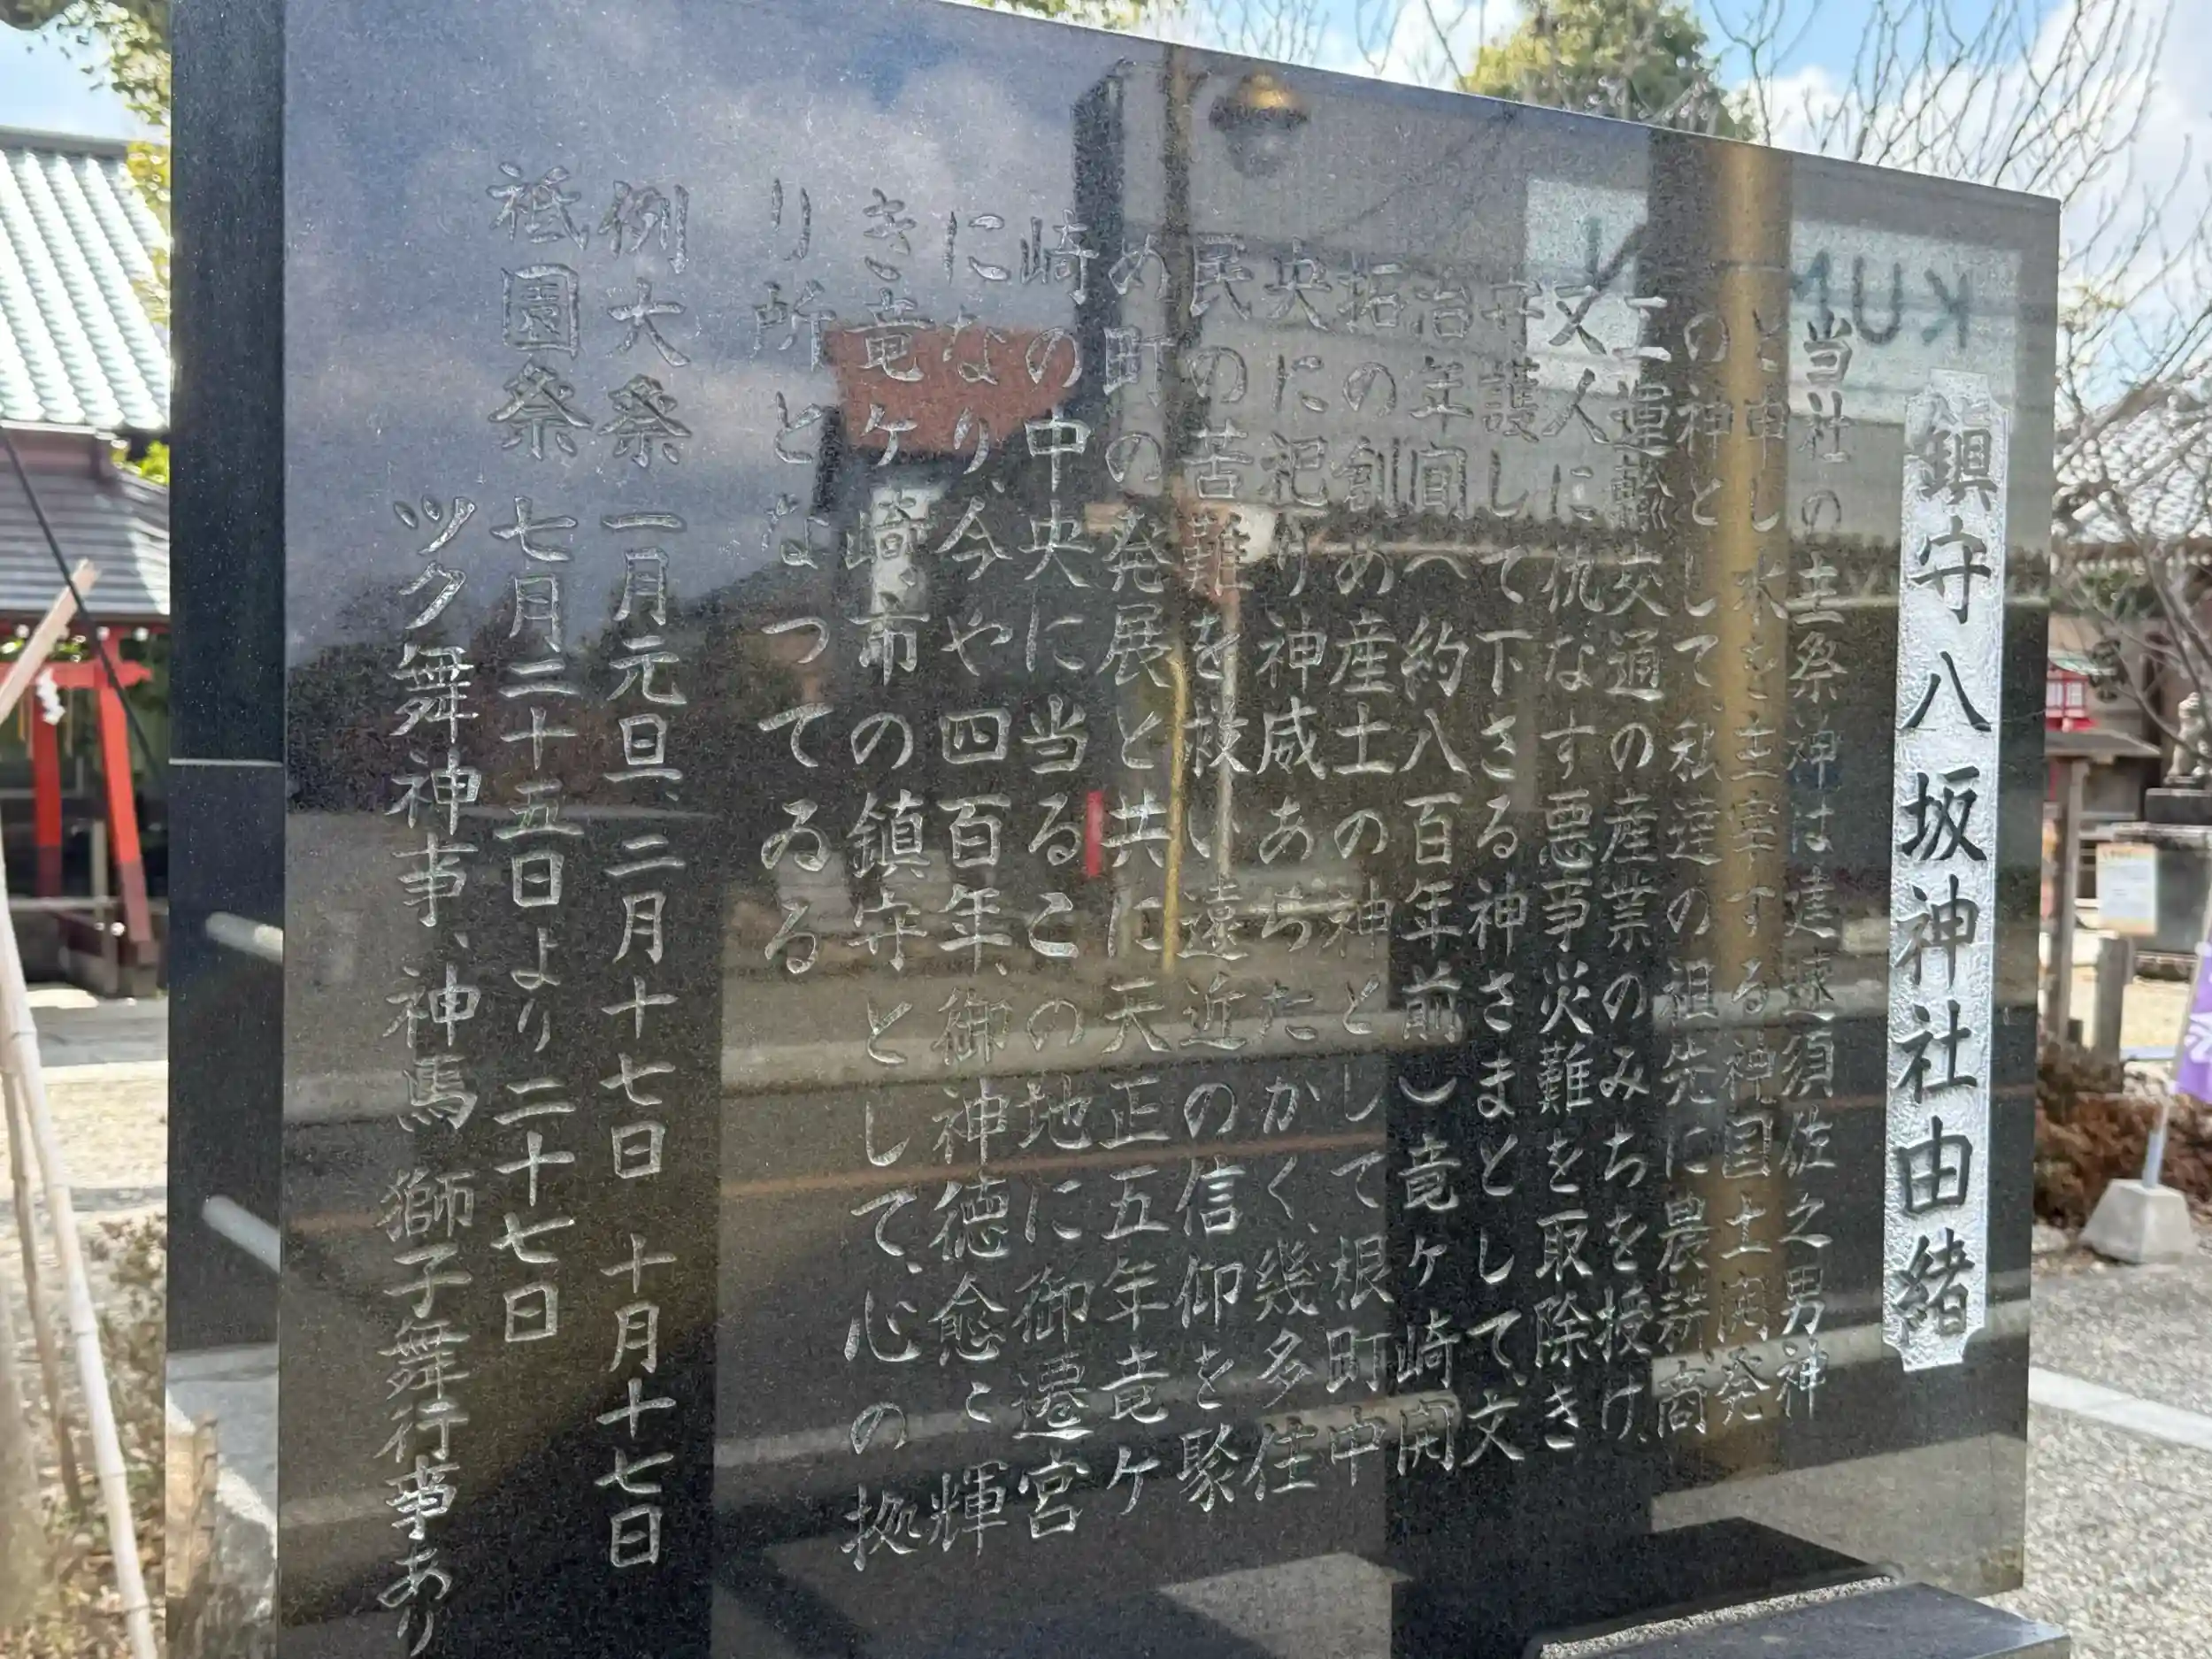 鎮守八坂神社由緒
当社の主祭神は建速須佐之男神
と申し水を主宰する神国土開発
の神として、私達の祖先に農耕商
工運輸交通の産業のみちを授け、
又人に仇なす悪事災難を取除き
守護して下さる神さまとして、文
治年間へ約八百年前)竜ヶ崎開
拓の創め産土の神として根町中
央に祀り神威あらたかく、幾多住
民の苦難を救い遠近の信仰を聚
め町の発展と共に天正五年竜ケ
崎の中央に当るこの地に御遷宮
になり、今や四百年、御神徳愈こ輝
き竜ケ崎市の鎮守として、心の拠
り所となってゐる
例大祭 一月元旦、二月十七日 十月十七日
祗園祭 七月二十五日より二十七日
ツク舞神事、神馬 獅子舞行事あり
KUM